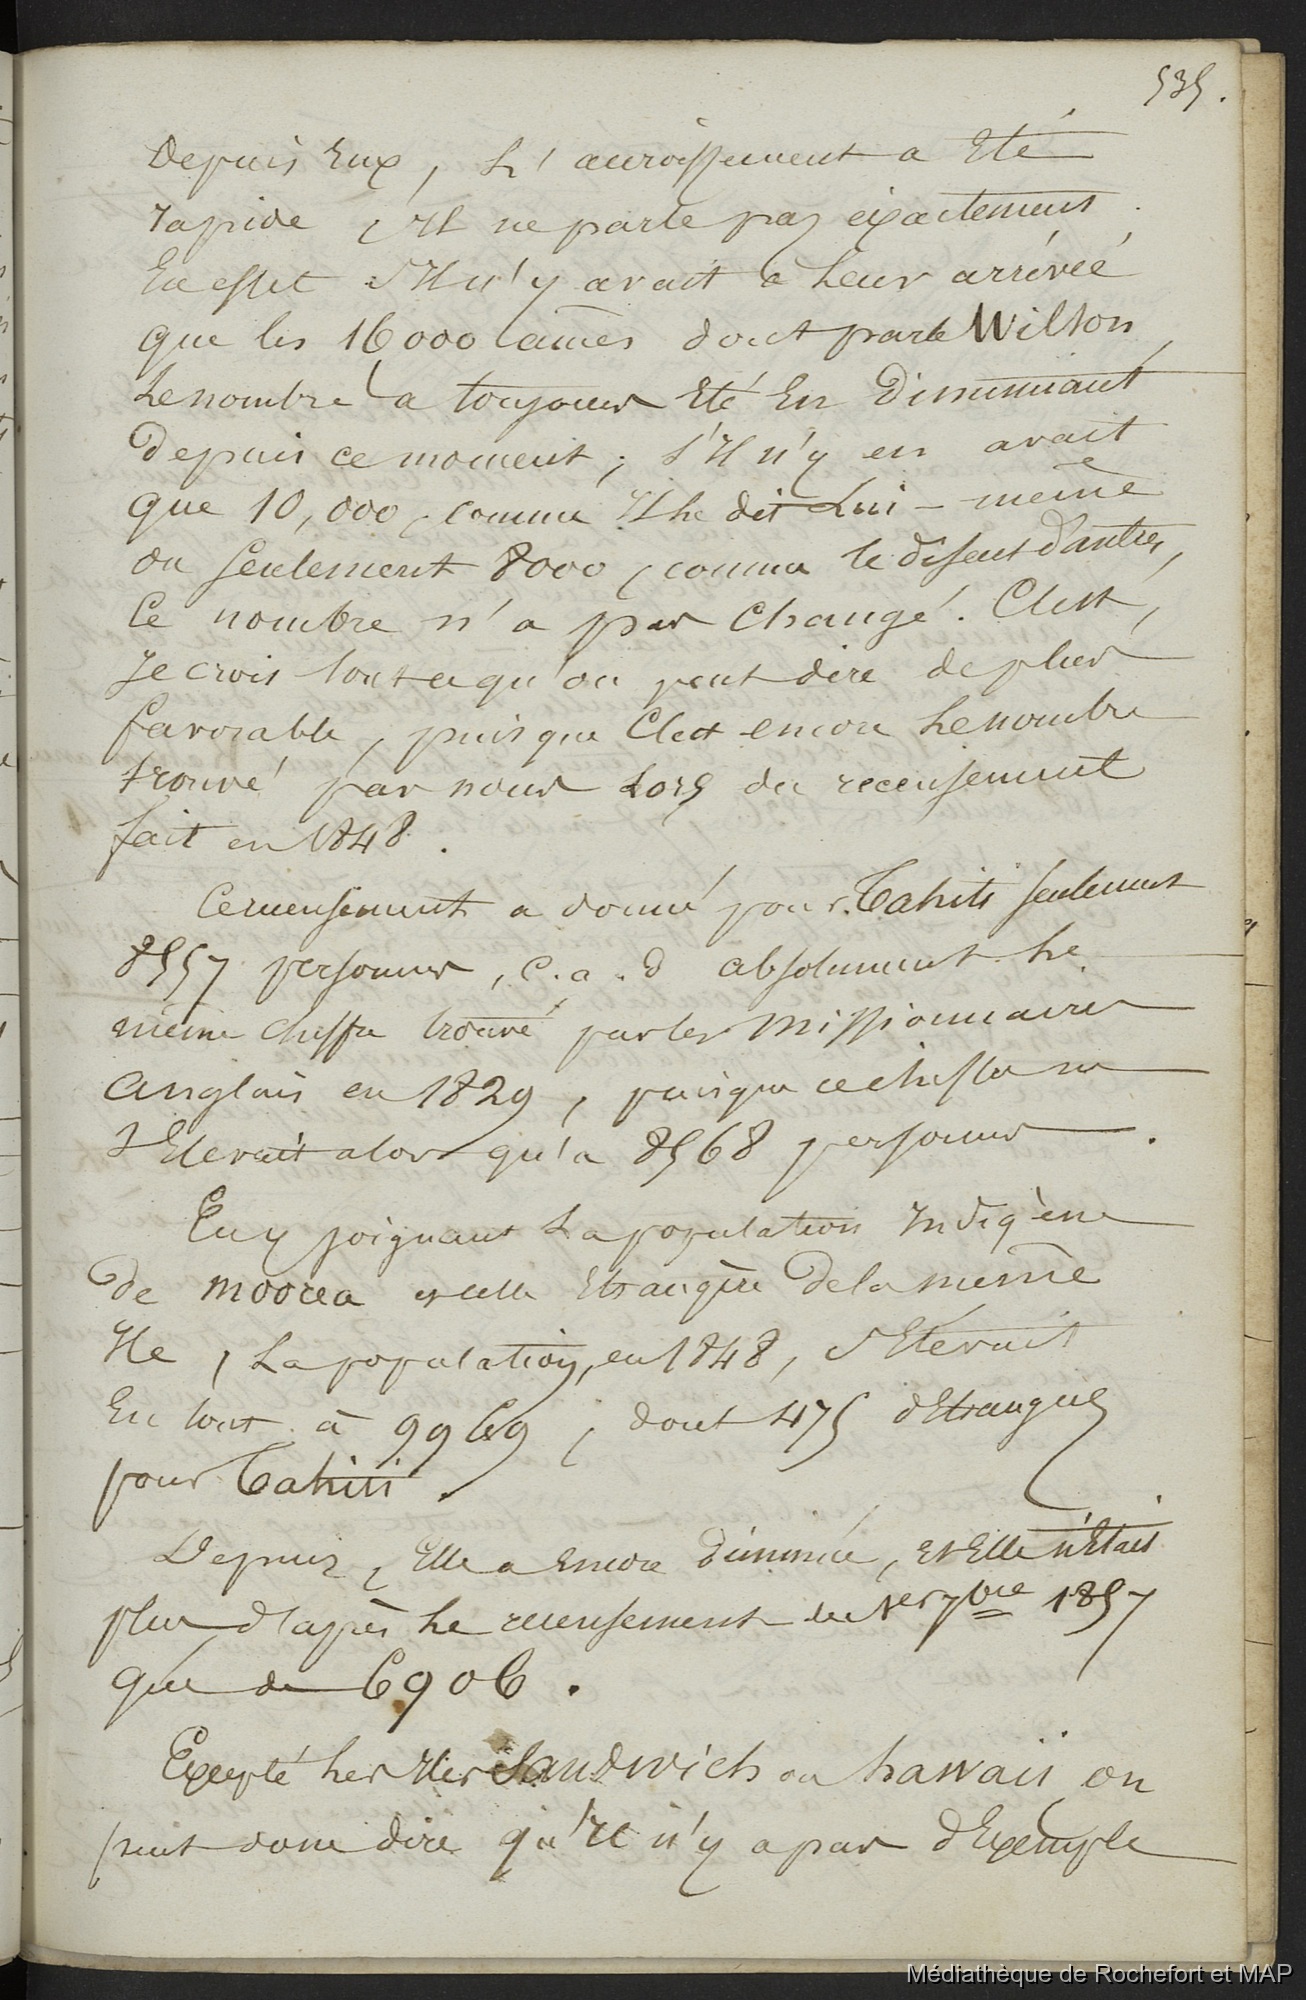 535.
Depuis Eux, L'accroissement a Eté
rapide, Il ne parle pas éxactement.
En effet s'Il n'y avait à Leur arrivée
que les 16000 âmes dont parle Wilson,
Le nombre a toujours Eté En Diminuant
Depuis ce moment; s'Il n'y en avait
que 10,000, comme Il Le dit Lui-même
ou seulement 8000, comme le disent d'autres,
Ce nombre n'a pas Changé. C'est,
Je crois tout ce qu'on peut dire de plus
favorable, puisque C'est encore Le nombre
trouvé par nous Lors du recensement
fait en 1848.
Ce recensement a donné pour Tahiti seulement
8557 personnes, c.a.d absolument Le
même chiffre trouvé par les Missionnaires
Anglais en 1829, puisque ce chiffre ne
s'Elevait alors qu'à 8568 personnes.
En y joignant La population Indigène
De Moorea et celle Etrangère De la même
Ile, La population, en 1848, s'Elevait
En tout à 9969, dont 475 d'Etrangers
pour Tahiti.
Depuis, Elle a Encore Diminué, et Elle n'Etait
plus d'après Le recensement du 1er 7bre 1857
que de 6906.
Excepté Les Iles Sandwich ou hawaii, on
peut donc dire qu'Il n'y a pas d'Exemple
Médiathèque de Rochefort et MAP